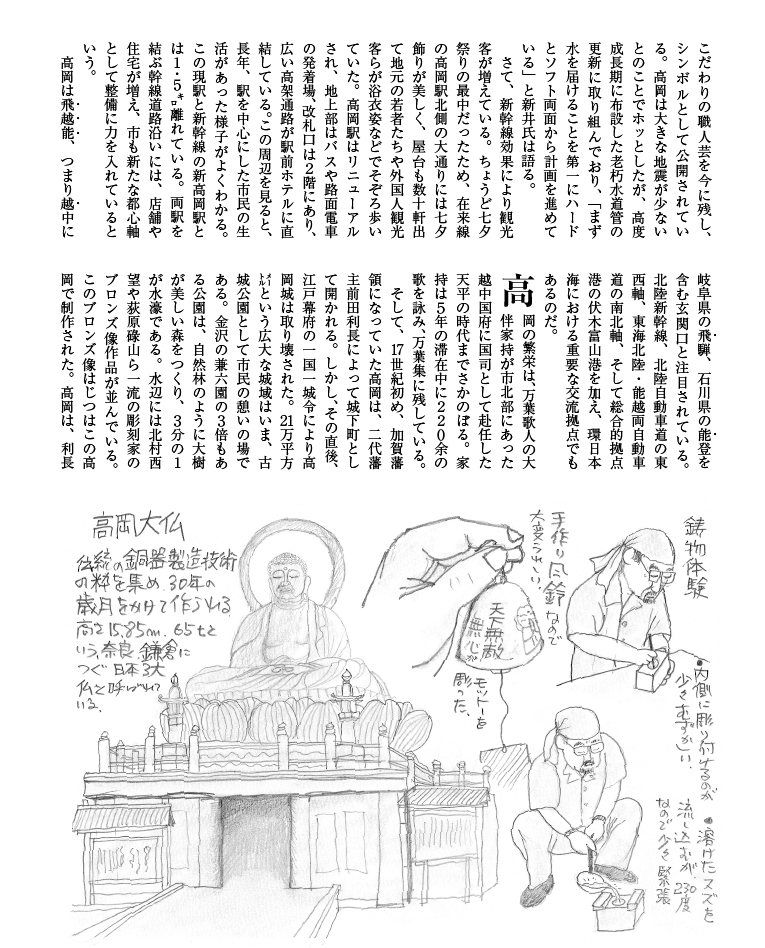 こだわりの職人芸を今に残し、
シンボルとして公開されてい
る。高岡は大きな地震が少ない
とのことでホッとしたが、高度
成長期に布設した老朽水道管の
更新に取り組んでおり、「まず
水を届けることを第一にハード
とソフト両面から計画を進めて
いる」と新井氏は語る。
さて、新幹線効果により観光
客が増えている。ちょうど七夕
祭りの最中だったため、在来線
の高岡駅北側の大通りには七夕
飾りが美しく、屋台も数十軒出
て地元の若者たちや外国人観光
客らが浴衣姿などでそぞろ歩い
ていた。高岡駅はリニューアル
され、地上部はバスや路面電車
の発着場、改札口は2階にあり、
広い高架通路が駅前ホテルに直
結している。この周辺を見ると、
長年、駅を中心にした市民の生
活があった様子がよくわかる。
この現駅と新幹線の新高岡駅と
は1・5㌔離れている。両駅を
結ぶ幹線道路沿いには、店舗や
住宅が増え、市も新たな都心軸
として整備に力を入れていると
いう。
高岡は飛越能、つまり越中に
岐阜県の飛騨、石川県の能登を
含む玄関口と注目されている。
北陸新幹線、北陸自動車道の東
西軸、東海北陸・能越両自動車
道の南北軸、そして総合的拠点
港の伏木富山港を加え、環日本
海における重要な交流拠点でも
あるのだ。
高岡の繁栄は、万葉歌人の大
伴家持が市北部にあった
越中国府に国司として赴任した
天平の時代までさかのぼる。家
持は5年の滞在中に220余の
歌を詠み、万葉集に残している。
そして、17世紀初め、加賀藩
領になっていた高岡は、二代藩
主前田利長によって城下町とし
て開かれる。しかし、その直後、
江戸幕府の一国一城令により高
岡城は取り壊された。21万平方
㍍という広大な城域はいま、古
城公園として市民の憩いの場で
ある。金沢の兼六園の3倍もあ
る公園は、自然林のように大樹
が美しい森をつくり、3分の1
が水濠である。水辺には北村西
望や荻原碌山ら一流の彫刻家の
ブロンズ像作品が並んでいる。
このブロンズ像はじつはこの高
岡で制作された。高岡は、利長
鋳物体験
手作り風鈴なので
大変うれしい。
天下無敵
無心が
モットーを
彫った、
・内側に彫り付けるのが
少々むずかしい。
・溶けたスズを
流し込むが、230度
なので少々緊張
高岡大仏
伝統の銅器製造技術
の粋を集め、30年の
歳月をかけて作られる。
高さ15.85m、65tと
いう。奈良、鎌倉に
つぐ日本3大
仏と呼ばれて
いる。